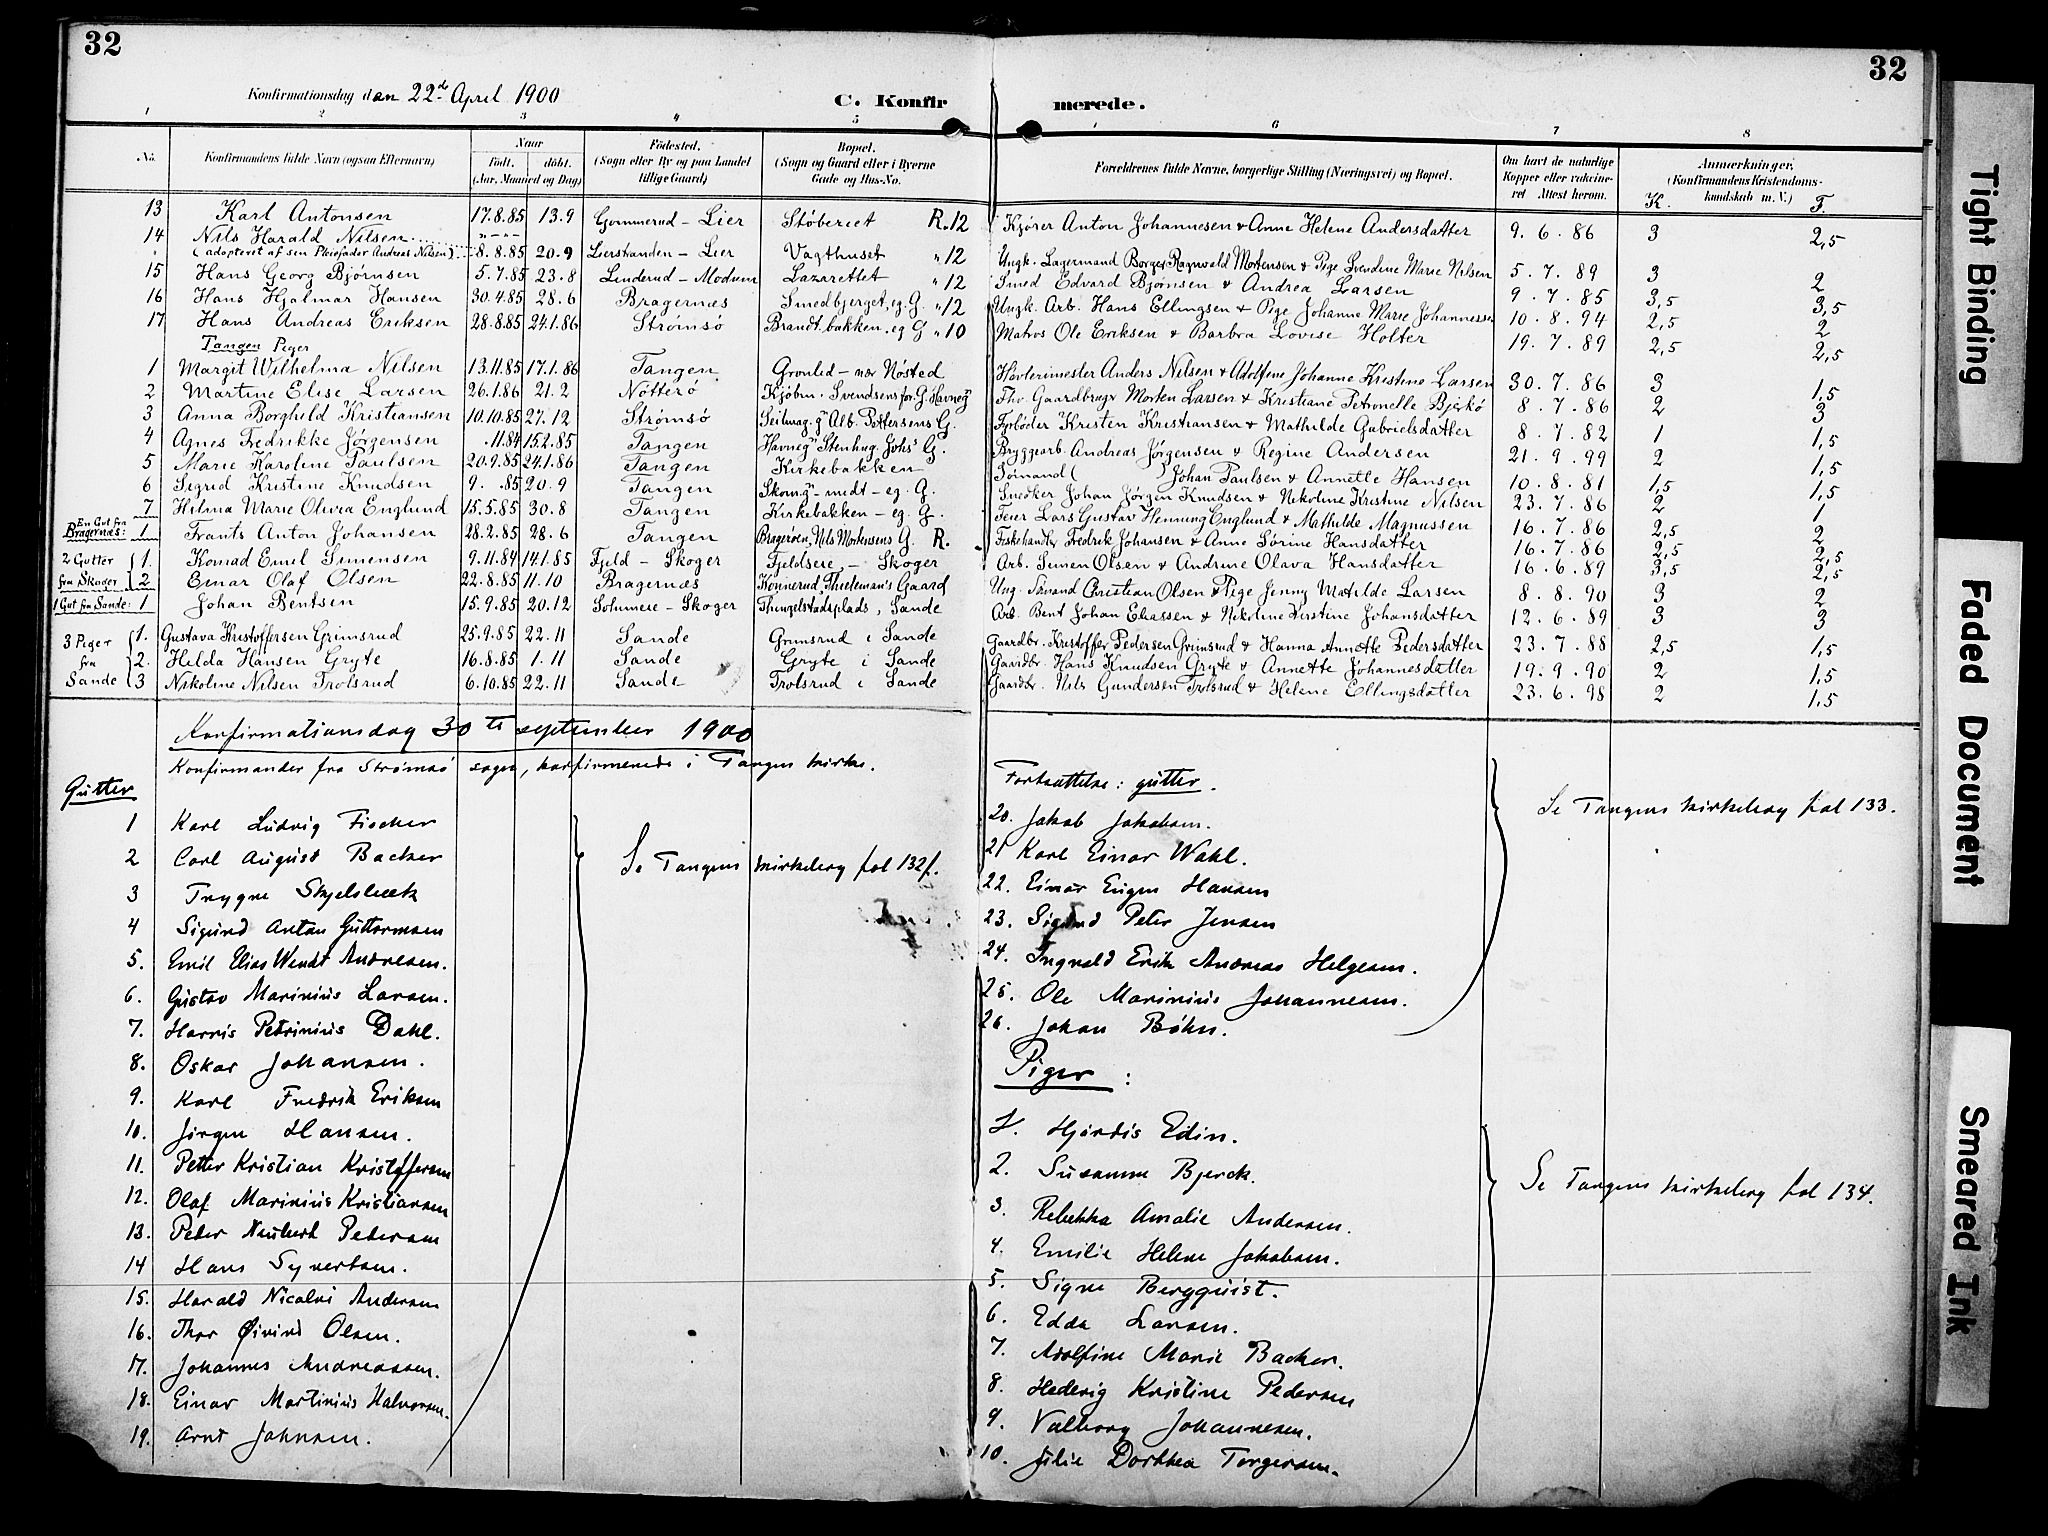 32
32
Konfirmationsdag den 22de April 1900
C. Konfirmerede.
1 2 3 4 5 6 7 8
No. Konfirmandens fulde Navn (ogsaa Efternavn) Naar født. døbt. (Aar, Maaned og Dag) Fødested. (Sogn eller By og paa Landet tillige Gaard) Bopæl. (Sogn og Gaard eller i Byerne Gade og Hus-No. Forældrenes fulde Navne, borgerlige Stilling (Næringsvei) og Bopæl. Om havt de naturlige Kopper eller vakcineret Attest herom. Anmærkninger. (Konfirmandens Kristendomskundskab m. V.) K. F.
13 Karl Antonsen 17.8.85 13.9 Gommerud - Lier Støberiet R. 12 Kjører Anton Johannesen & Anne Helene Andersdatter 9. 6. 86 3 2,5
14 Nils Harald Nilsen
(adopteret af sin Pleiefader Andreas Nilsen) 8.8.85 20.9 Lierstranden - Lier Vagthuset " 12 Ungk. Lagermand Borger Ragnvald Mortensen & Pige Svendine Marie Nilsen 5. 7. 89 3 2
15 Hans Georg Bjørnsen 5.7.85 23.8 Linderud - Modum Lazarettet " 12 Smed Edvard Bjønsen & Andrea Larsen 9. 7. 85 3,5 3,5
16 Hans Hjalmar Hansen 30.4.85 28.6 Bragernæs Smedbjerget, eg. G. " 12 Ungk. Arb. Hans Ellingsen & Pige Johanne Marie Johannessen 10. 8. 94 2,5 2
17 Hans Andreas Eriksen 28.8.85 24.1.86 Strømsø Brandt.bakken. eg G " 10 Matros Ole Eriksen & Barbra Lovise Holter 19. 7. 89 2,5 2,5
Tangen Piger
1 Margit Wilhelma Nilsen 13.11.85 17.1.86 Tangen Grønled - nør Nøsted Høvlerimester Anders Nilsen & Adolfine Johanne Krestine Larsen 30. 7. 86 3 1,5
2 Martine Elise Larsen 26.1.86 21.2 Nøtterø Kjøbm. Svendsens for. G. Havneg. Fhv. Gaardbruger Morten Larsen & Kristiane Petronelle Bjerkø 8. 7. 86 2 3
3 Anna Borghild Kristiansen 10.10.85 27.12 Strømsø Seilmag. g. Alb. Pettersens G. Fyrbøder Kristen Kristiansen & Mathilde Gabrielsdatter 8. 7. 82 1 1,5
4 Agnes Fredrikke Jørgensen .11.84 15.2.85 Tangen Havneg. Stenhug. Johs' G. Bryggearb. Andreas Jørgensen & Regine Andersen 21. 9. 99 2 1,5
5 Marie Karoline Paulsen 20.9.85 24.1.86 Tangen Kirkebakken Sømand ( ) Johan Paulsen & Annette Hansen 10. 8. 81 1,5 1,5
6 Sigrid Kristine Knudsen 9. .85 20.9 Tangen Skomg. - midt - eg. G. Snedker Johan Jørgen Knudsen & Nikoline Kristine Nilsen 23. 7. 86 2 1
7 Hilma Marie Olivia Englund 15.5.85 30.8 Tangen Kirkebakken - eg. G. Feier Lars Gustav Henning Englund & Mathilde Magnussen 16. 7. 86 2,5 2
En Gut fra Bragernæs: 1 Frants Anton Johansen 28.2.85 28.6 Tangen Bragerøen, Nils Mortensens G. R. Fiskehandler Fredrik Johansen & Anne Sørine Hansdatter 16. 7. 86 2,5 2,5
2 Gutter 1. Konrad Emil Simensen 9.11.84 14.1.85 Fjeld - Skoger Fjeldseie, - Skoger Arb. Simen Olsen & Andrine Olava Hansdatter 16. 6. 89 3,5 2,5
fra Skoger 2 Einar Olaf Olsen 22.8.85 11.10 Bragernæs Konnerud, Thielemans Gaard Ung. Sømand Christian Olsen & Pige Jenny Matilde Larsen 8. 8. 90 3 2
1 Gut fra Sande: 1 Johan Bentsen 15.9.85 20.12 Solumeie - Skoger Thingelstadsplads, Sande Arb. Bent Johan Eliassen & Nikoline Kirstine Johansdatter 12. 6. 89 3 3
3 Piger 1. Gustava Kristoffersen Grimsrud 25.9.85 22.11 Sande Grimsrud i Sande Gaardbr. Kristoffer Pedersen Grimsrud & Hanna Annette Pedersdatter 23. 7. 88 2,5 1,5
fra 2. Hilda Hansen Gryte 16.8.85 1.11 Sande Gryte i Sande Gaardbr. Hans Knudsen Gryte & Annette Johannesdatter 19. 9. 90 2 1,5
Sande 3 Nikoline Nilsen Trolsrud 6.10.85 22.11 Sande Trolsrud i Sande Gaardbr. Nils Gundersen Trolsrud & Helene Ellingsdatter 23. 6. 98 2 1,5
Konfirmationsdag 30te september 1900
Konfirmander fra Strømsø sogn, konfirmerede i Tangen kirke.
Gutter
1 Karl Ludvig Fischer
2 Carl August Backer
3 Trygve Skjelsbæk
4 Sigurd Anton Guttormsen
5. Emil Elias Wendt Andresen.
6. Gustav Marinius Larsen.
7. Harris Petrinius Dahl.
8. Oskar Johansen.
9. Karl Fredrik Eriksen
10. Jørgen Hansen.
11. Petter Kristian Kristoffersen
12. Olaf Marinius Kristiansen
13. Peter Neubert Petersen
14 Hans Syvertsen.
15. Harald Nicolai Andersen
16. Thor Øivind Olsen.
17. Johannes Andreassen.
18. Einar Martinius Halvorsen.
19. Arnt Johnsen.
Se Tangens kirkebog fol 132f.
Fortsættelse: gutter.
20. Jakob Jakobsen.
21 Karl Einar Wahl.
22. Einar Eugen Hansen
23. Sigurd Peter Jensen
24. Ingvald Erik Andreas Helgesen.
25. Ole Marinius Johannesen.
26. Johan Bøhn.
Se Tangens kirkebog fol 133.
Piger:
1. Hjørdis Edin.
2. Susanne Bjerck.
3. Rebekka Amalie Andersen.
4. Emilie Helene Jakobsen.
5. Signe Bergquist.
6. Edda Larsen.
7. Adolfine Marie Backer.
8. Hedevig Kristine Pedersen
9. Valborg Johannesen.
10. Julie Dorthea Torgersen.
Se Tangens kirkebog fol 134.
Tight Binding
Faded Document
Smeared Ink